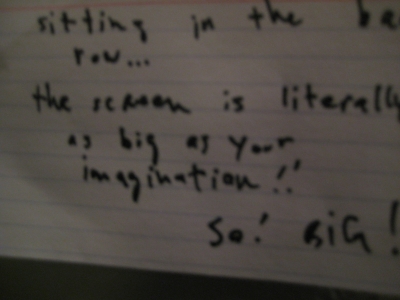 sitting in the ba
row...
the screen is literally
as big as your
imagination!!
So! BiG!